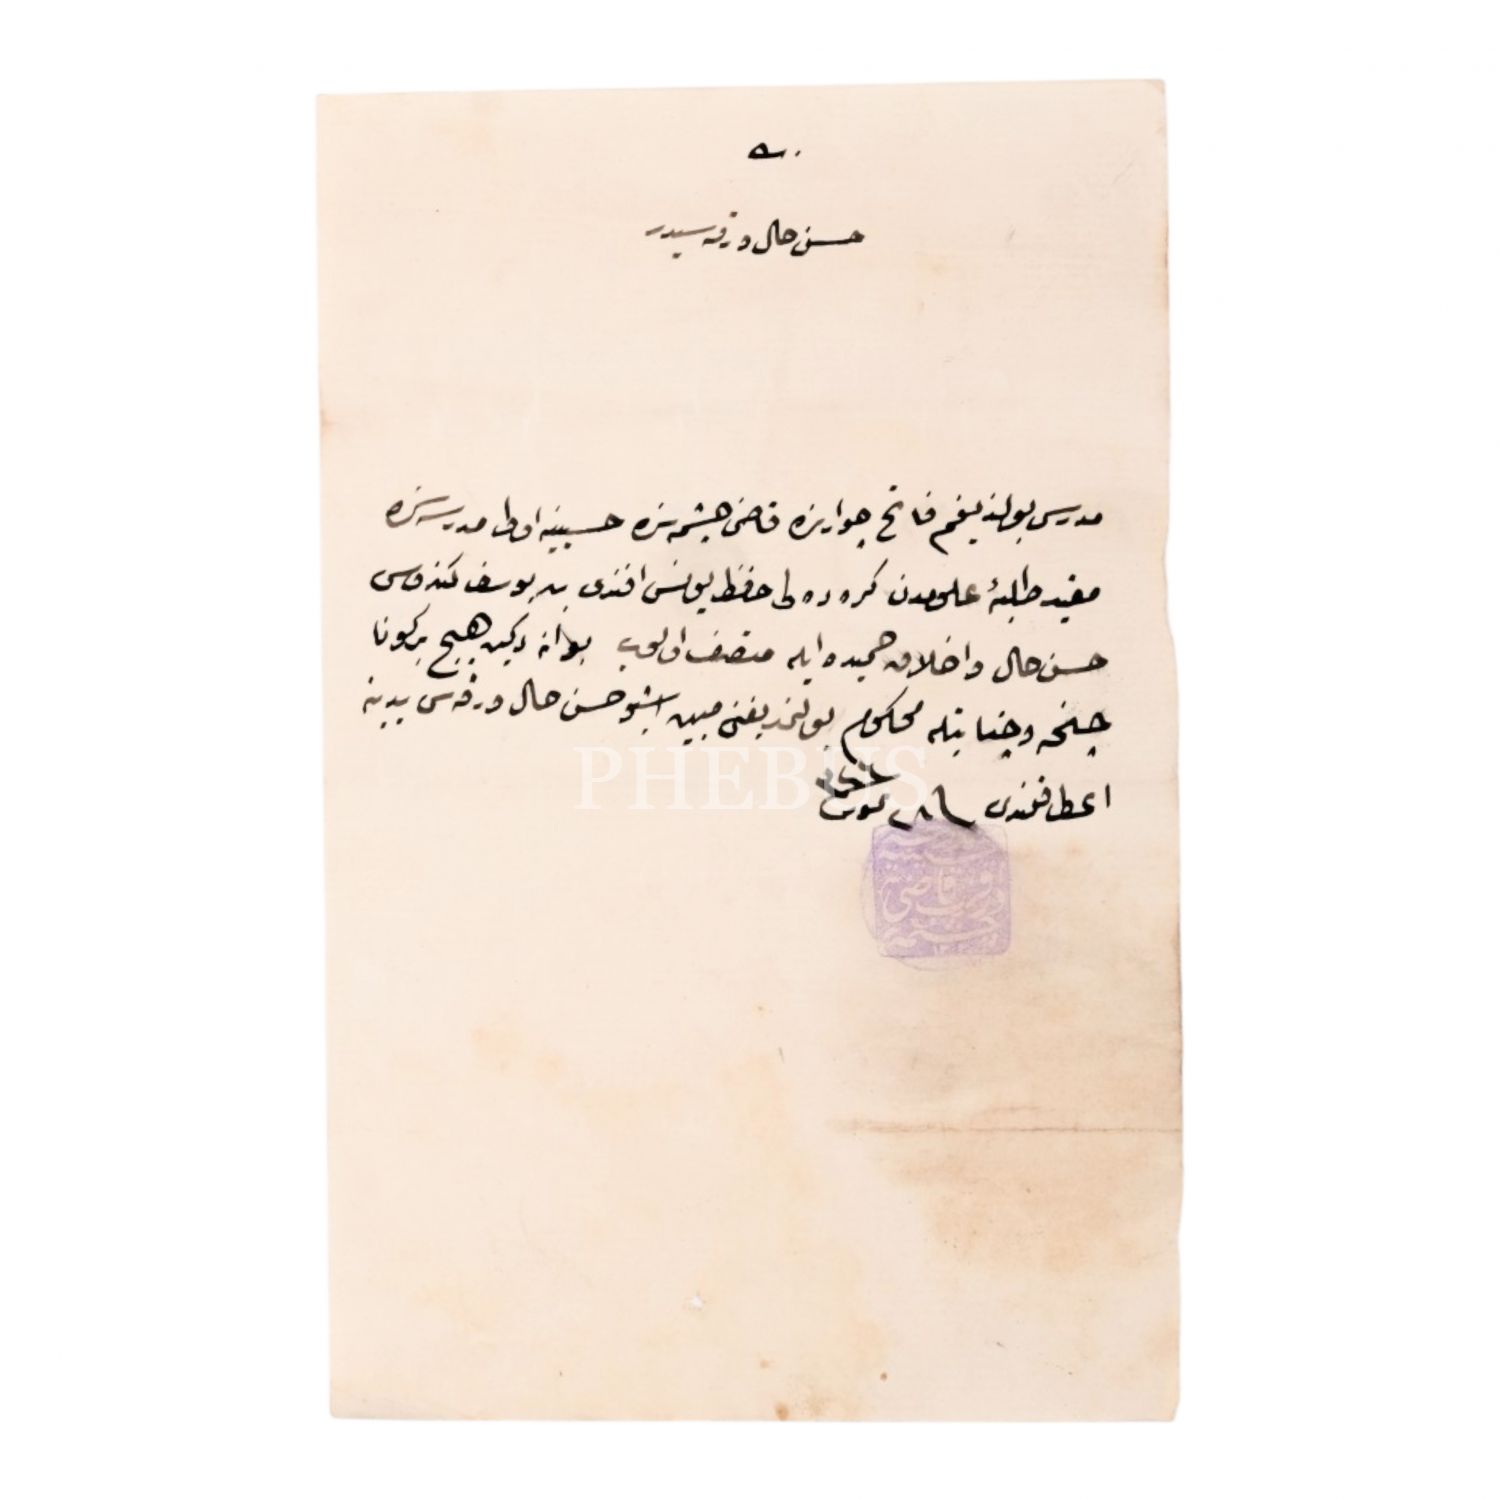 حسن حال ورقه سیدر
مدرسی بولندیغم فاتح جوارنده قاضی چشمه سنده حسینیه اوطه مدرسه سنده
مقید طلبهٔ علومدن کرده لی حافظ یونس افندی بن یوسف کندوسی
حسن حال و اخلاق حمیده ایله متصف اولوب بو آنه دکین هیچ بر کونا
جنحه و جنایتله محکوم بولنمدیغنی مبین اشبو حسن حال ورقه سی یدینه
اعطا قلندی
PHEBUS